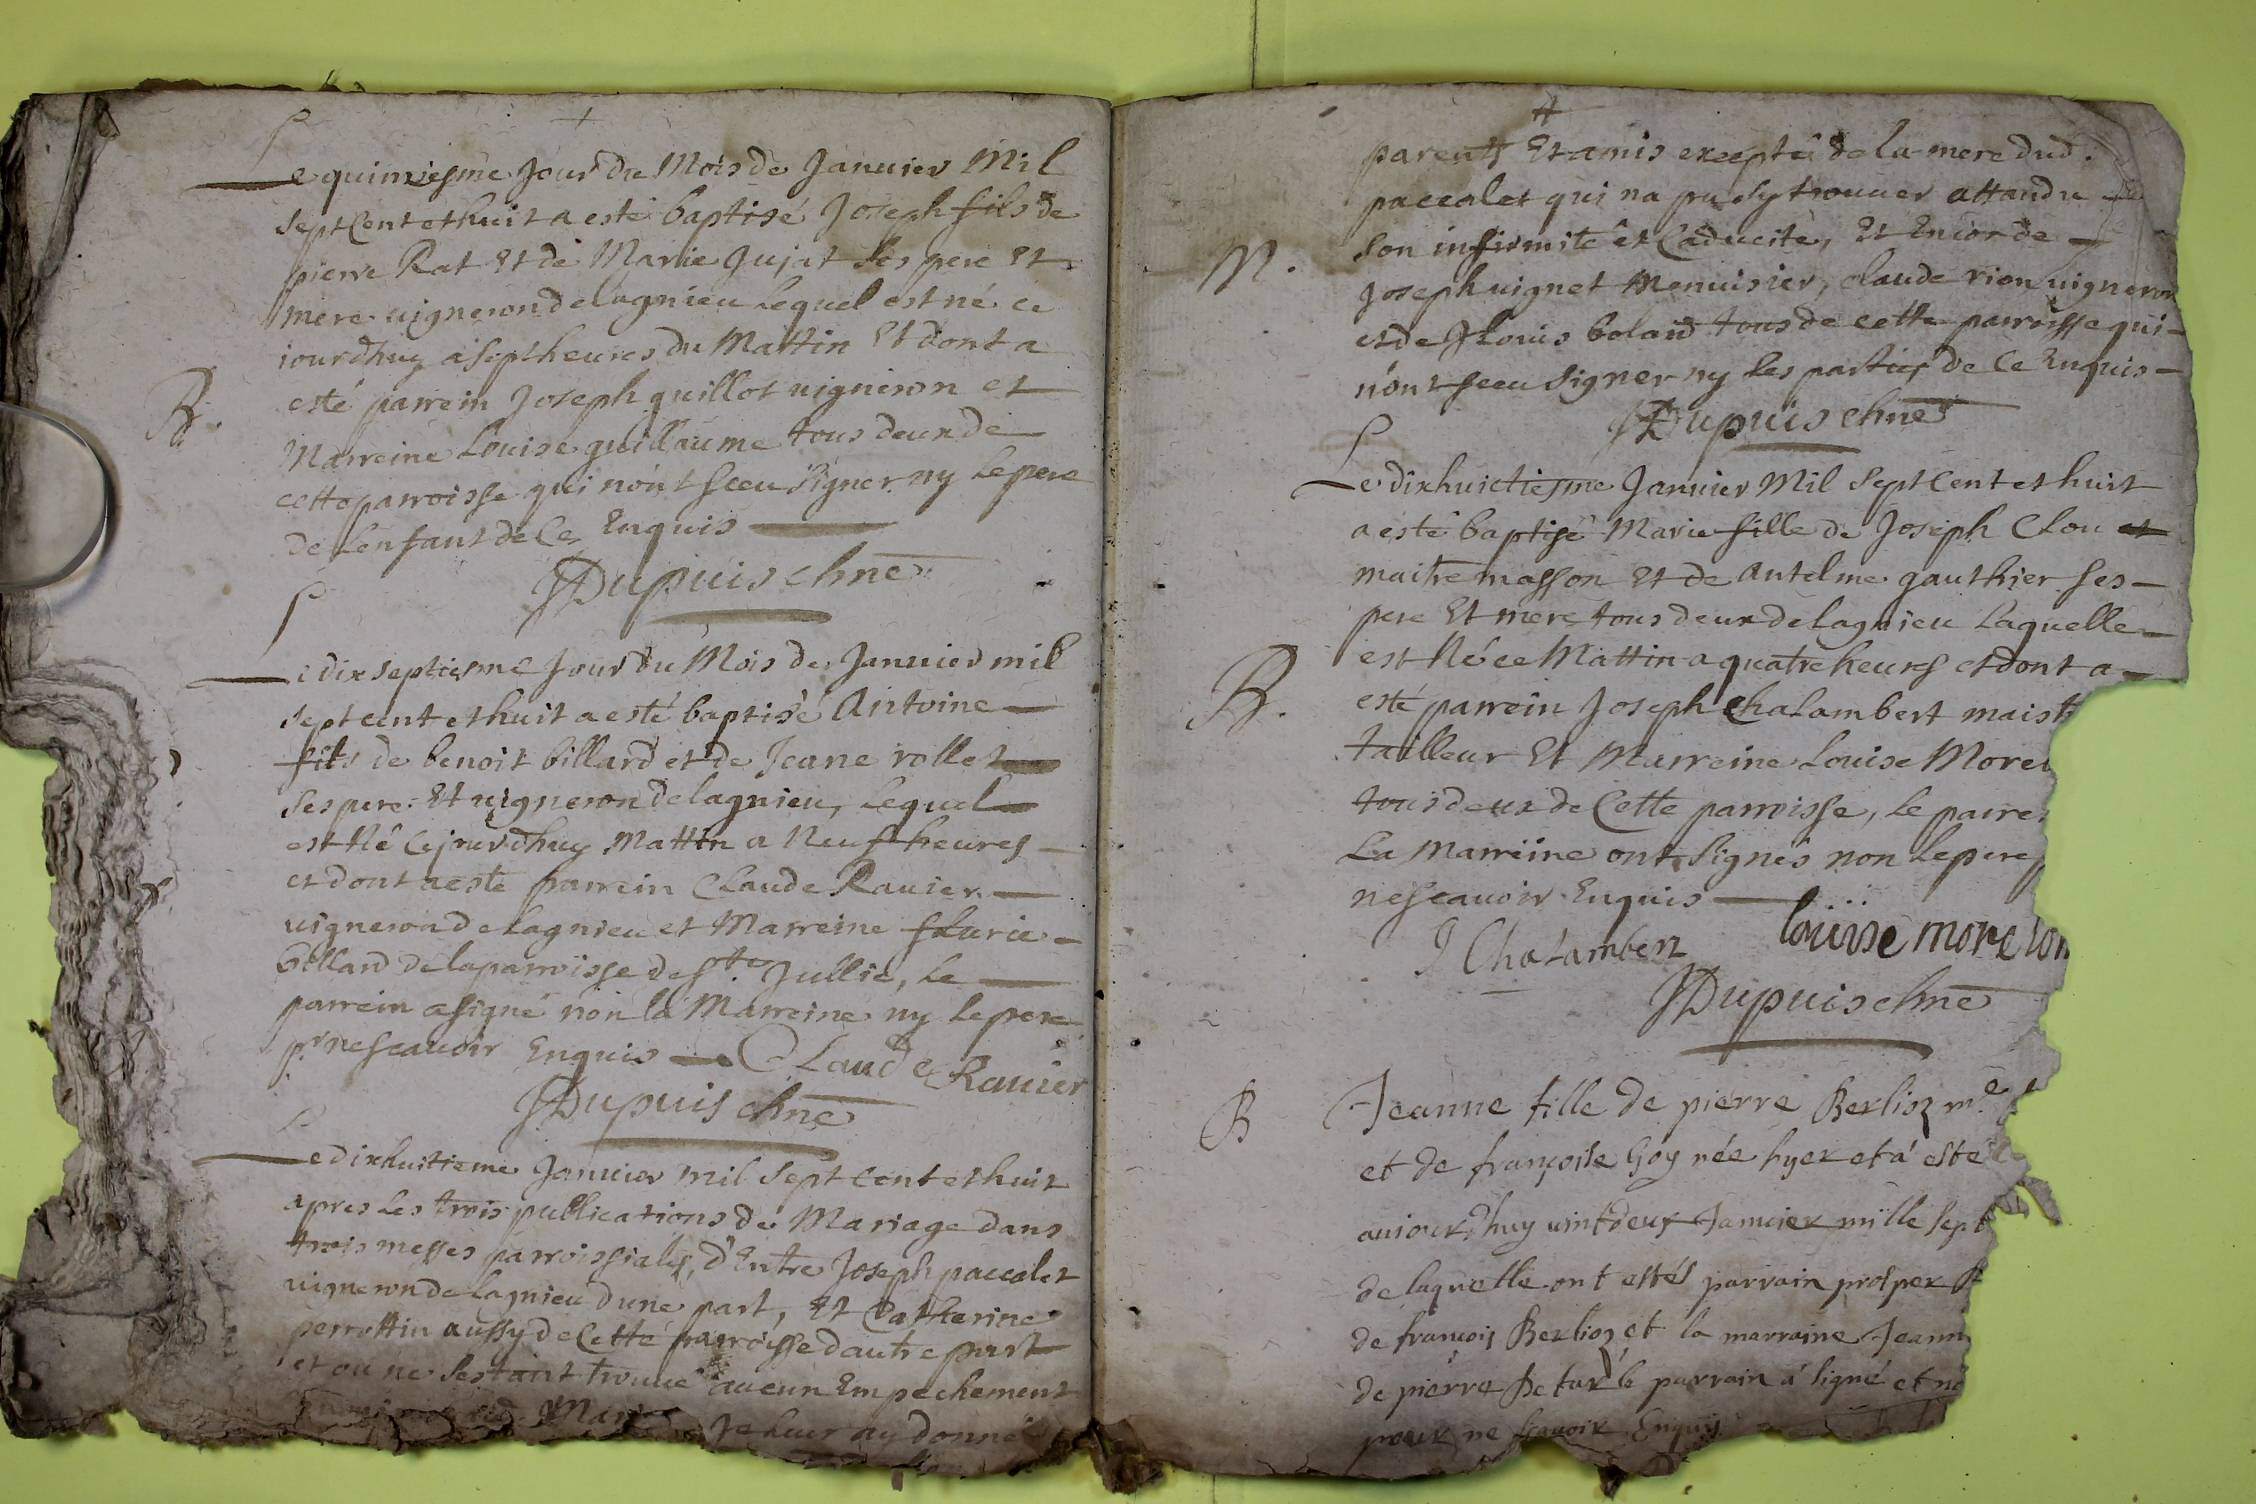 Le quinziesme Jour du Mois de Januier Mil
sept Cent et huit a esté baptisé Joseph fils de
pierre Rat Et de Marie Jujat ses pere Et
mere uigneron de lagnieu Lequel est né ce
iourdhuy a sept heures du Mattin Et dont a
B.
esté parrein Joseph quillot uigneron et
Marreine Louise guillaume tous deux de
cette parroisse qui n'ont sceu Signer ny Le pere
de L'enfant de Ce Enquis
JDupuis chne
Le dix septiesme Jour du Mois de Januier mil
sept cent et huit a esté baptisé Antoine
fils de benoit billard et de Jeane rollet
ses pere Et uigneron de lagnieu, Lequel
est Né Cejourdhuy Mattin a Neuf heures
et dont a esté parrein Claude Rauier
uigneron de Lagnieu et Marreine fLurie
billard de la parroisse de Ste. Jullie, Le
parrein a signé non la Marreine ny Le pere
pr ne scauoir Enquis Claude Rauier
JDupuis chne
Le dixhuitieme Januier mil sept Cent et huit
apres Les trois publications de Mariage dans
trois messes parroissiales, d'Entre Joseph paccalet
uigneron de Lagnieu dune part, Et Catherine
perrottin aussy de Cette parroisse dautre part
et ou ne sestant trouué aucun Empechement
Je Leur ay donné
parents Et amis excepté de la mere dud.
paccalet qui na pu sy trouuer attandu
M.
son infirmité et Caducité, Et Encor de
Joseph uignet Menuisier, claude rion uigneron
et de JLouis boland tous de cette parroisse qui
n'ont sceu Signer ny Les parties de Ce Enquis
JDupuis chne
Le dixhuictiesme Januier Mil Sept Cent et huit
a esté baptisé Marie fille de Joseph CLou et
maitre masson Et de Antelme gauthier ses
pere Et mere tous deux de lagnieu Laquelle
est Né ce Mattin a quatre heures et dont a
B.
esté parrein Joseph ChaLambert maist
tailleur Et Marreine Louise More
tous deux de Cette parroisse, Le parre
La Marreine ont Signés non Le pere
ne scauoir Enquis
J ChaLambert louise moreton
JDupuis chne
B
Jeanne fille de pierre Berlioz me
et de françoise Goy née hyer et a' esté
auiourdhuy uintdeux Januier mille sept
de laquelle ont estés parrain prosper
de francois Berlioz et la marraine Jeann
de pierre Betard le parrain a' signé et no
pour ne scauoir Enquis